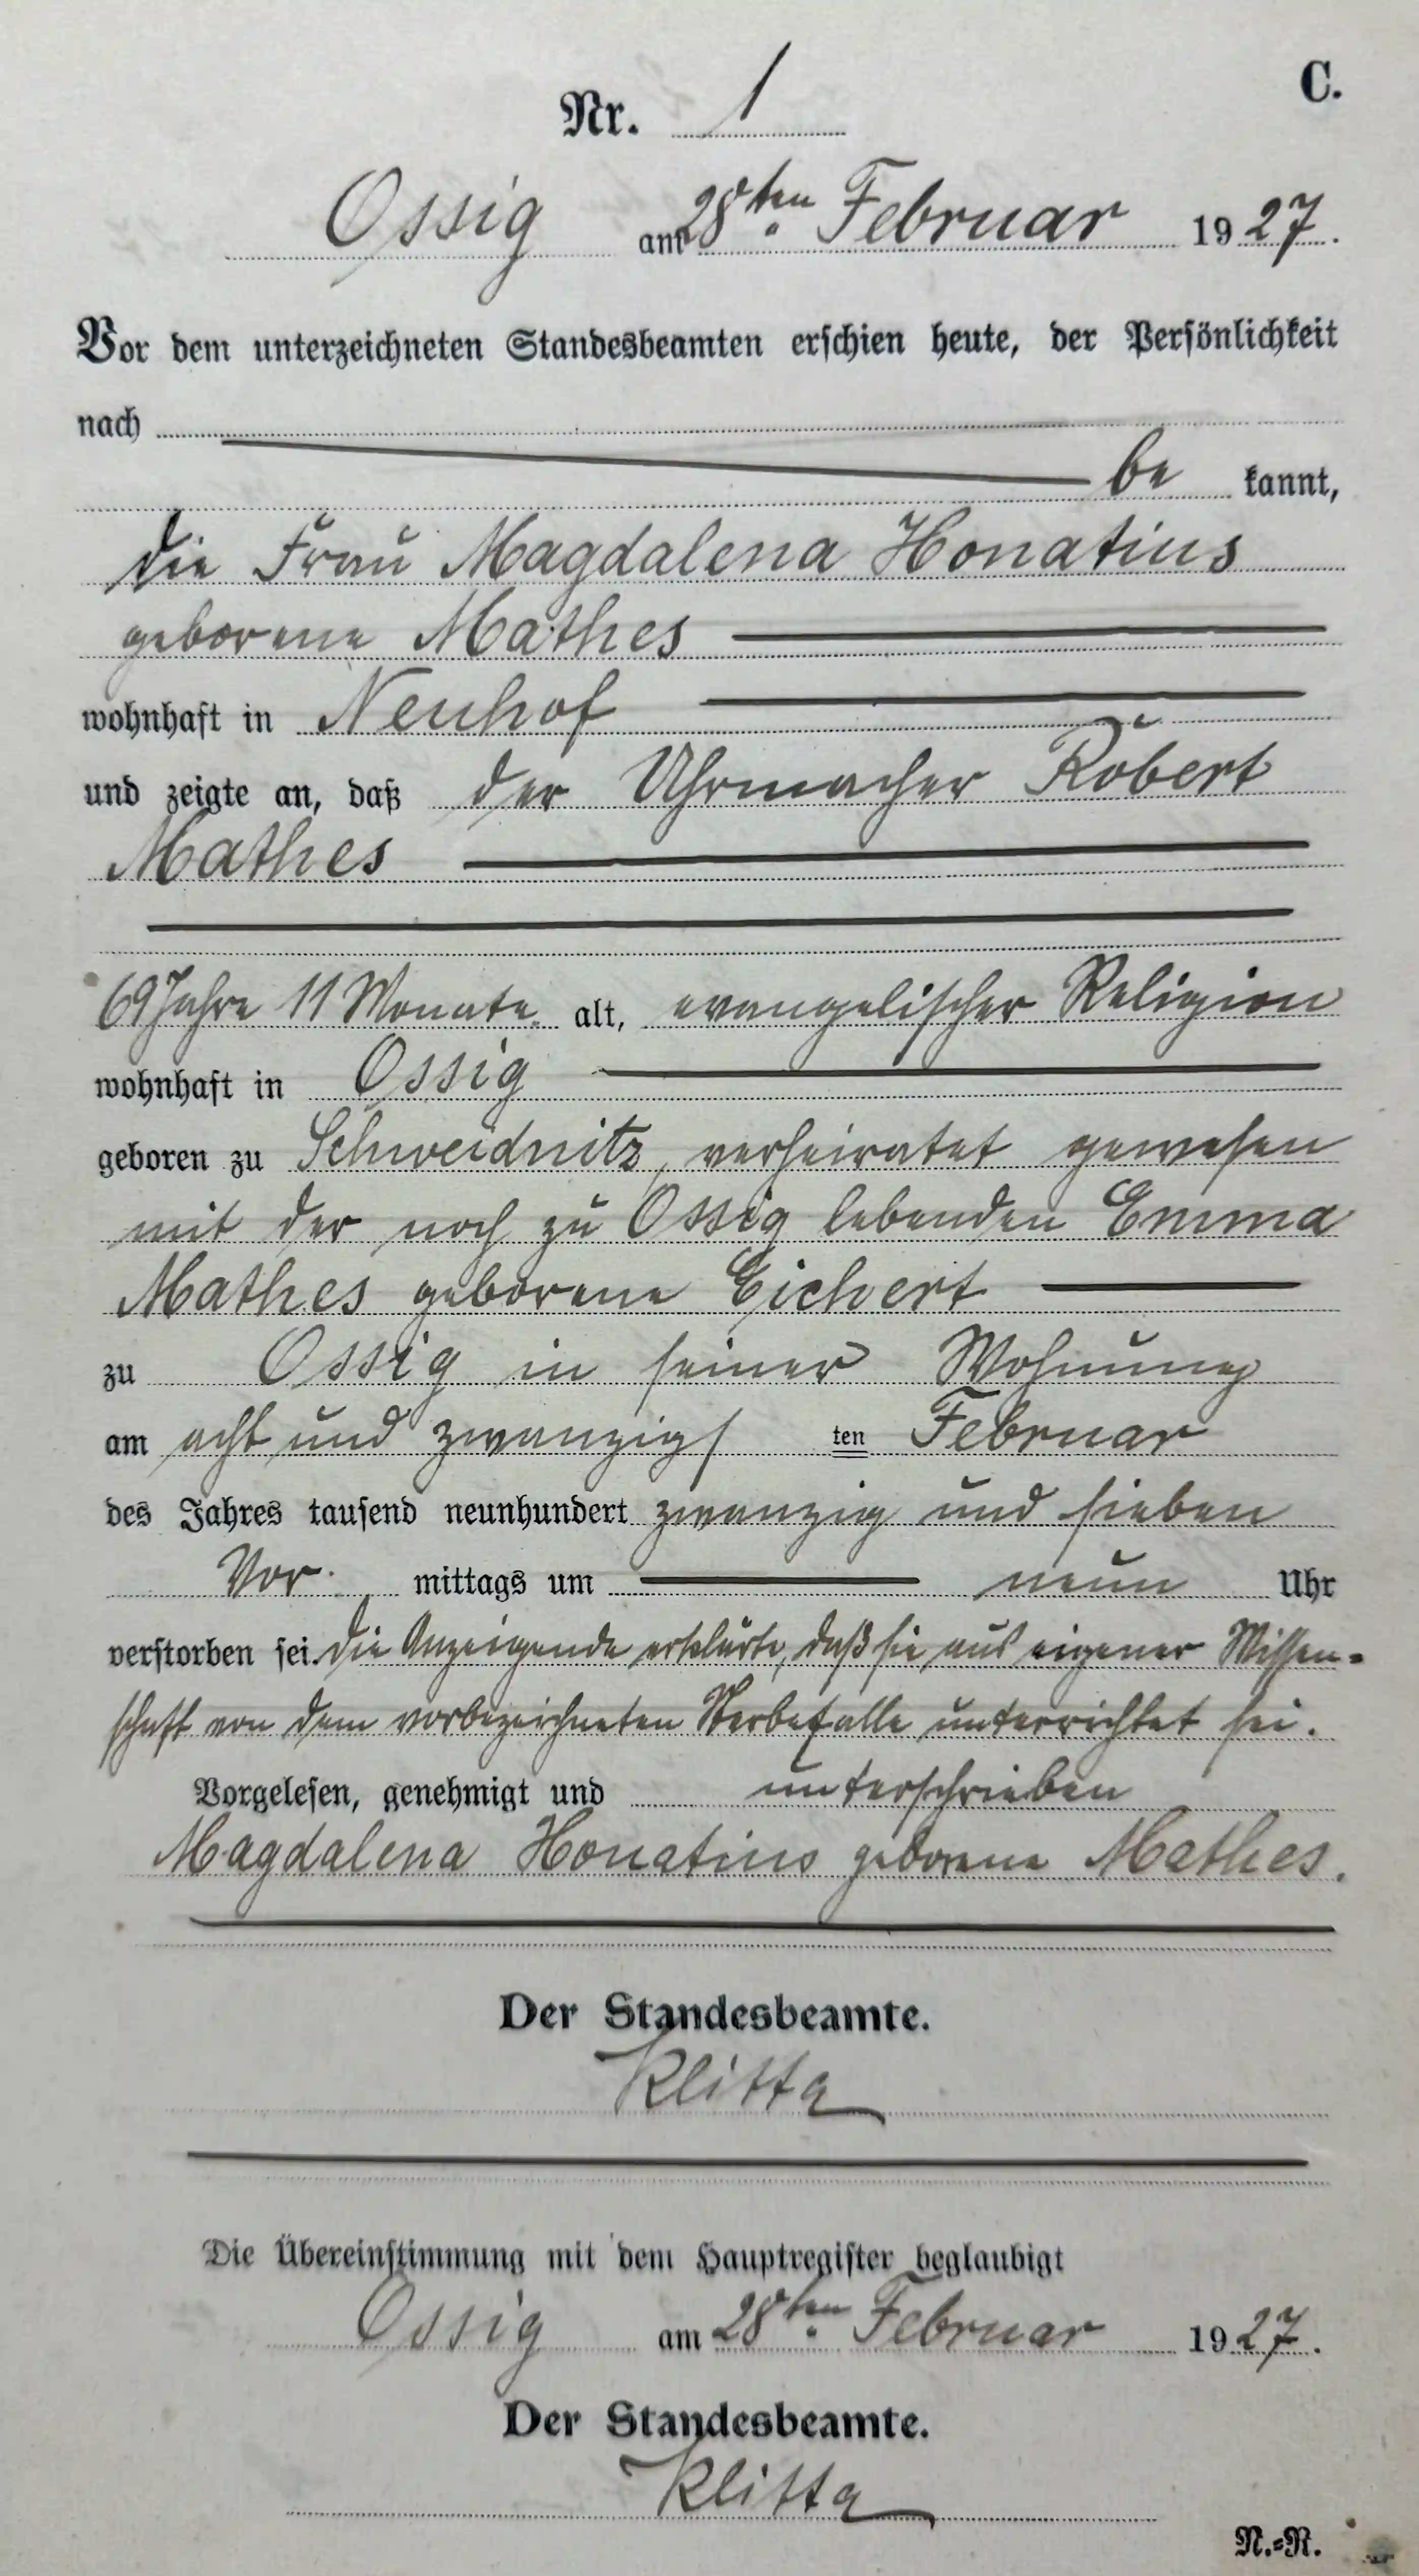 C.
Nr. 1
Ossig am 28ten Februar 1927.
Vor dem unterzeichneten Standesbeamten erschien heute, der Persönlichkeit
nach
be kannt,
die Frau Magdalena Honatius
geborene Mathes
wohnhaft in Neuhof
und zeigte an, daß der Uhrmacher Robert
Mathes
69 Jahre 11 Monate alt, evangelischer Religion
wohnhaft in Ossig
geboren zu Schweidnitz, verheiratet gewesen
mit der noch zu Ossig lebenden Emma
Mathes geborene Eichert
zu Ossig in seiner Wohnung
am acht und zwanzigs ten Februar
des Jahres tausend neunhundert zwanzig und sieben
Vor mittags um neun Uhr
verstorben sei. Die Anzeigende erklärte, daß sie aus eigener Wissen-
schaft von dem vorbezeichneten Sterbefalle unterrichtet sei.
Vorgelesen, genehmigt und unterschrieben
Magdalena Honatius geborene Mathes.
Der Standesbeamte.
Klitta
Die Übereinstimmung mit dem Hauptregister beglaubigt
Ossig am 28ten Februar 1927.
Der Standesbeamte.
Klitta
N.=R.